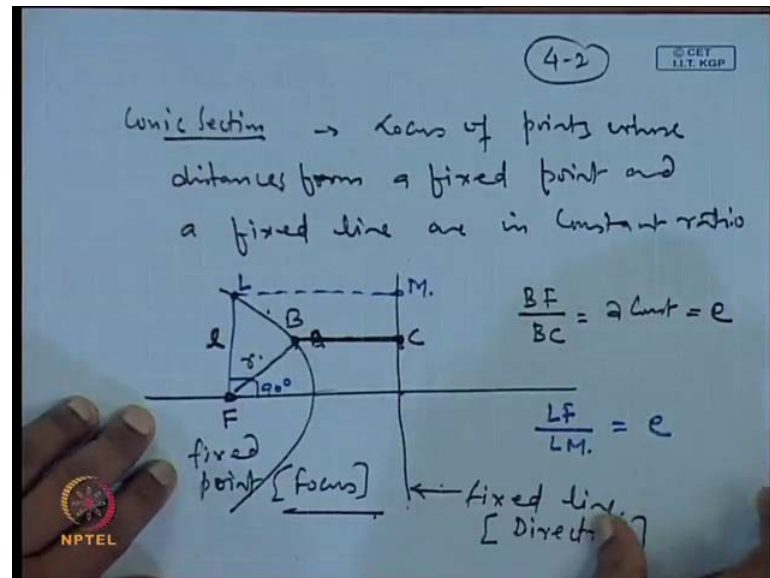 4-2
© CET
I.I.T. KGP
Conic Section → Locus of points whose
distances from a fixed point and
a fixed line are in Constant ratio
L M.
l B C
r.
90°
F
BF/BC = a Const = e
LF/LM. = e
fixed
point [Focus]
← fixed line.
[Direct ]
NPTEL